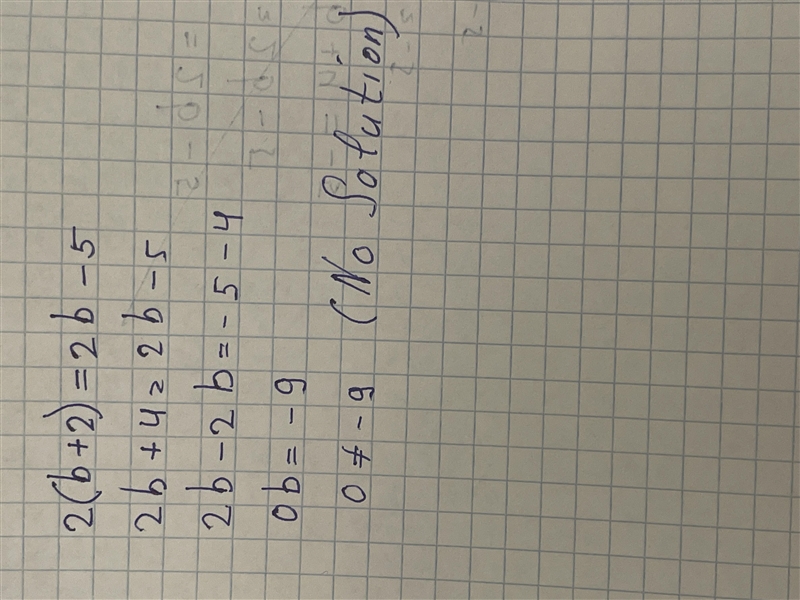 2(b+2)=2b-5
2b+4=2b-5
2b-2b=-5-4
0b=-9
0≠-9 (No Solution)